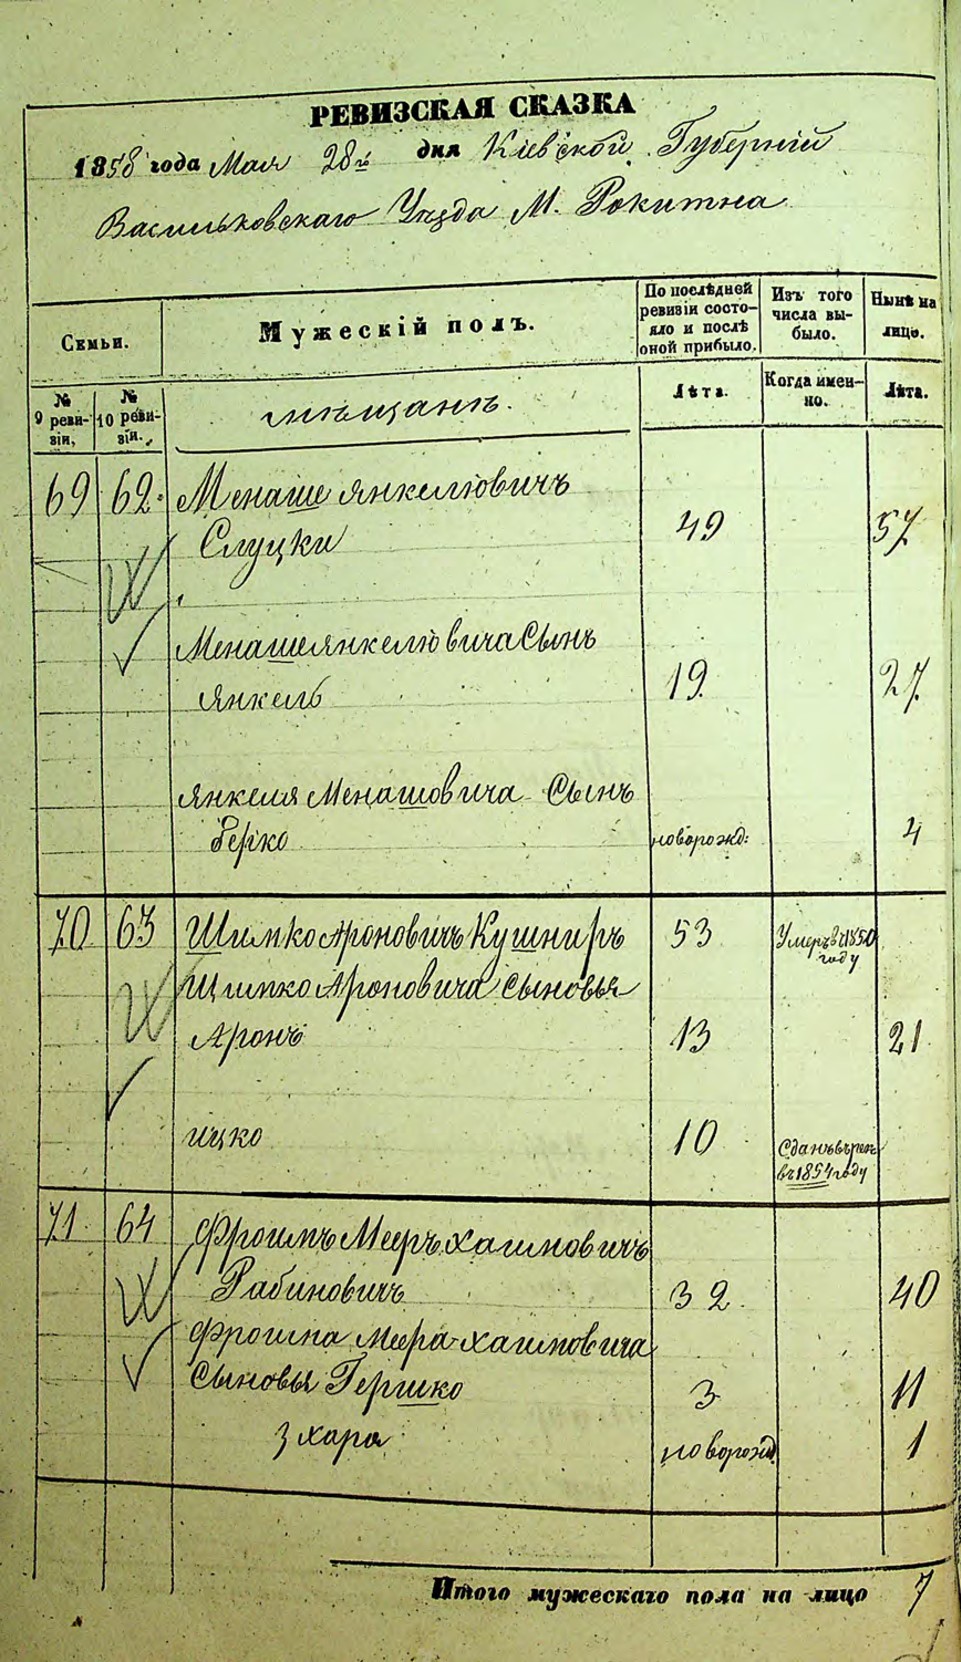 РЕВИЗСКАЯ СКАЗКА
1858 года Мая 28го дня Кіевской Губерніи
Васильковскаго Уѣзда М. Рокитна
Семьи.
Мужескій полъ.
По послѣдней ревизіи состояло и послѣ оной прибыло.
Изъ того числа выбыло.
Нынѣ на лицо.
№ 9 ревизіи.
№ 10 ревизіи.
мѣщанѣ.
Лѣта.
Когда именно.
Лѣта.
69 62. Менаше Янкелювичъ
Слуцки 49 57
Менаше Янкелювича Сынъ
Янкель 19 27
Янкеля Менашовича Сынъ
Берко новорожд: 4
70 63 Шимко Ароновичъ Кушниръ 53 Умеръ въ 1850 году
Шимко Ароновича Сыновья
Аронъ 13 21
Ицко 10 Сданъ въ рек въ 1854 году
71 64 Фроимъ Мееръ Хаимовичъ
Рабиновичъ 32 40
Фроима Меера Хаимовича
Сыновья Гершко 3 11
Зхаря новорожд. 1
Итого мужескаго пола на лицо 7